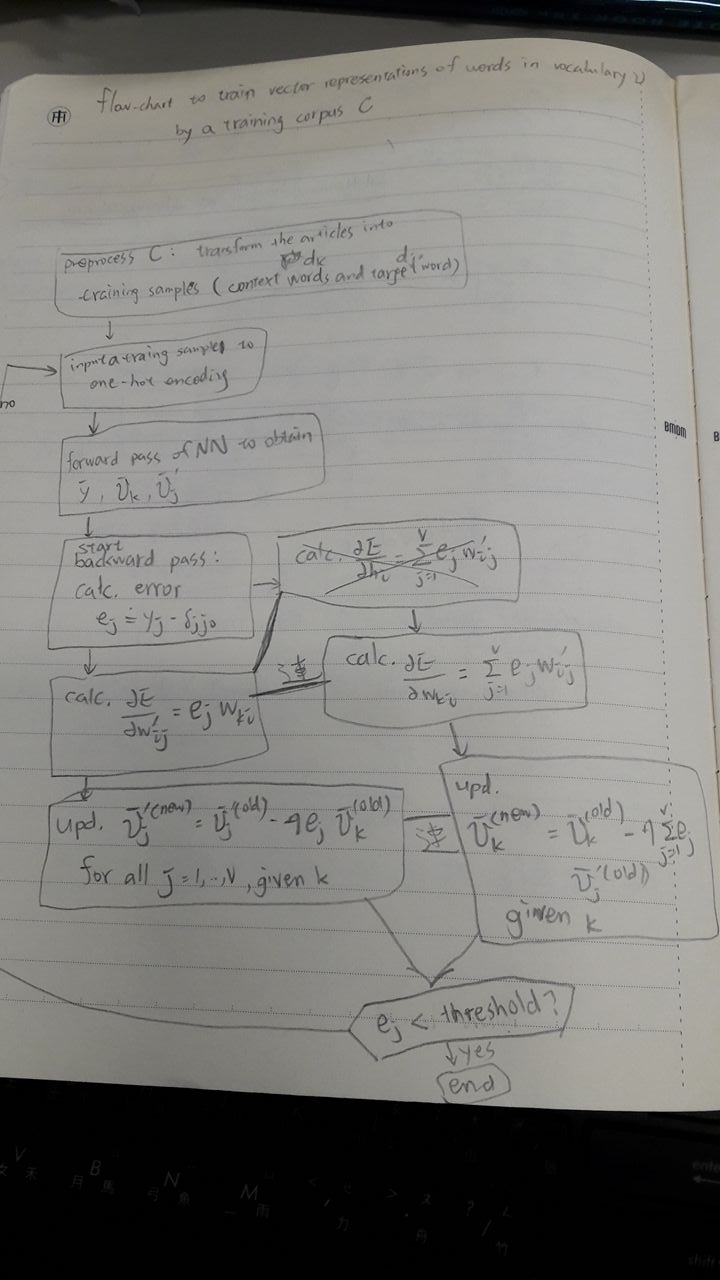 flow-chart to train vector representations of words in vocabulary V
by a training corpus C
preprocess C: transform the articles into
dk dj'
training samples (context words and target word)
input a traing sample to
one-hot encoding
no
forward pass of NN to obtain
ȳ, v̄k, v̄j'
start
backward pass:
calc. error
ej ≐ yj - δjj₀
calc. ∂E/∂hi = Σ(j=1..V) ej w'ij
calc. ∂E/∂w'ij = ej wki
連
calc. ∂E/∂wki = Σ(j=1..V) ej w'ij
upd. v̄j'(new) = v̄j'(old) - η ej v̄k(old)
for all j = 1, .., V, given k
連
upd.
v̄k(new) = v̄k(old) - η Σ(j=1..V) ej
v̄j'(old)
given k
ej < threshold?
yes
end
Bmipm
V
禾
B
月 馬
N
弓 魚
M
一 雨
力
enter
shift